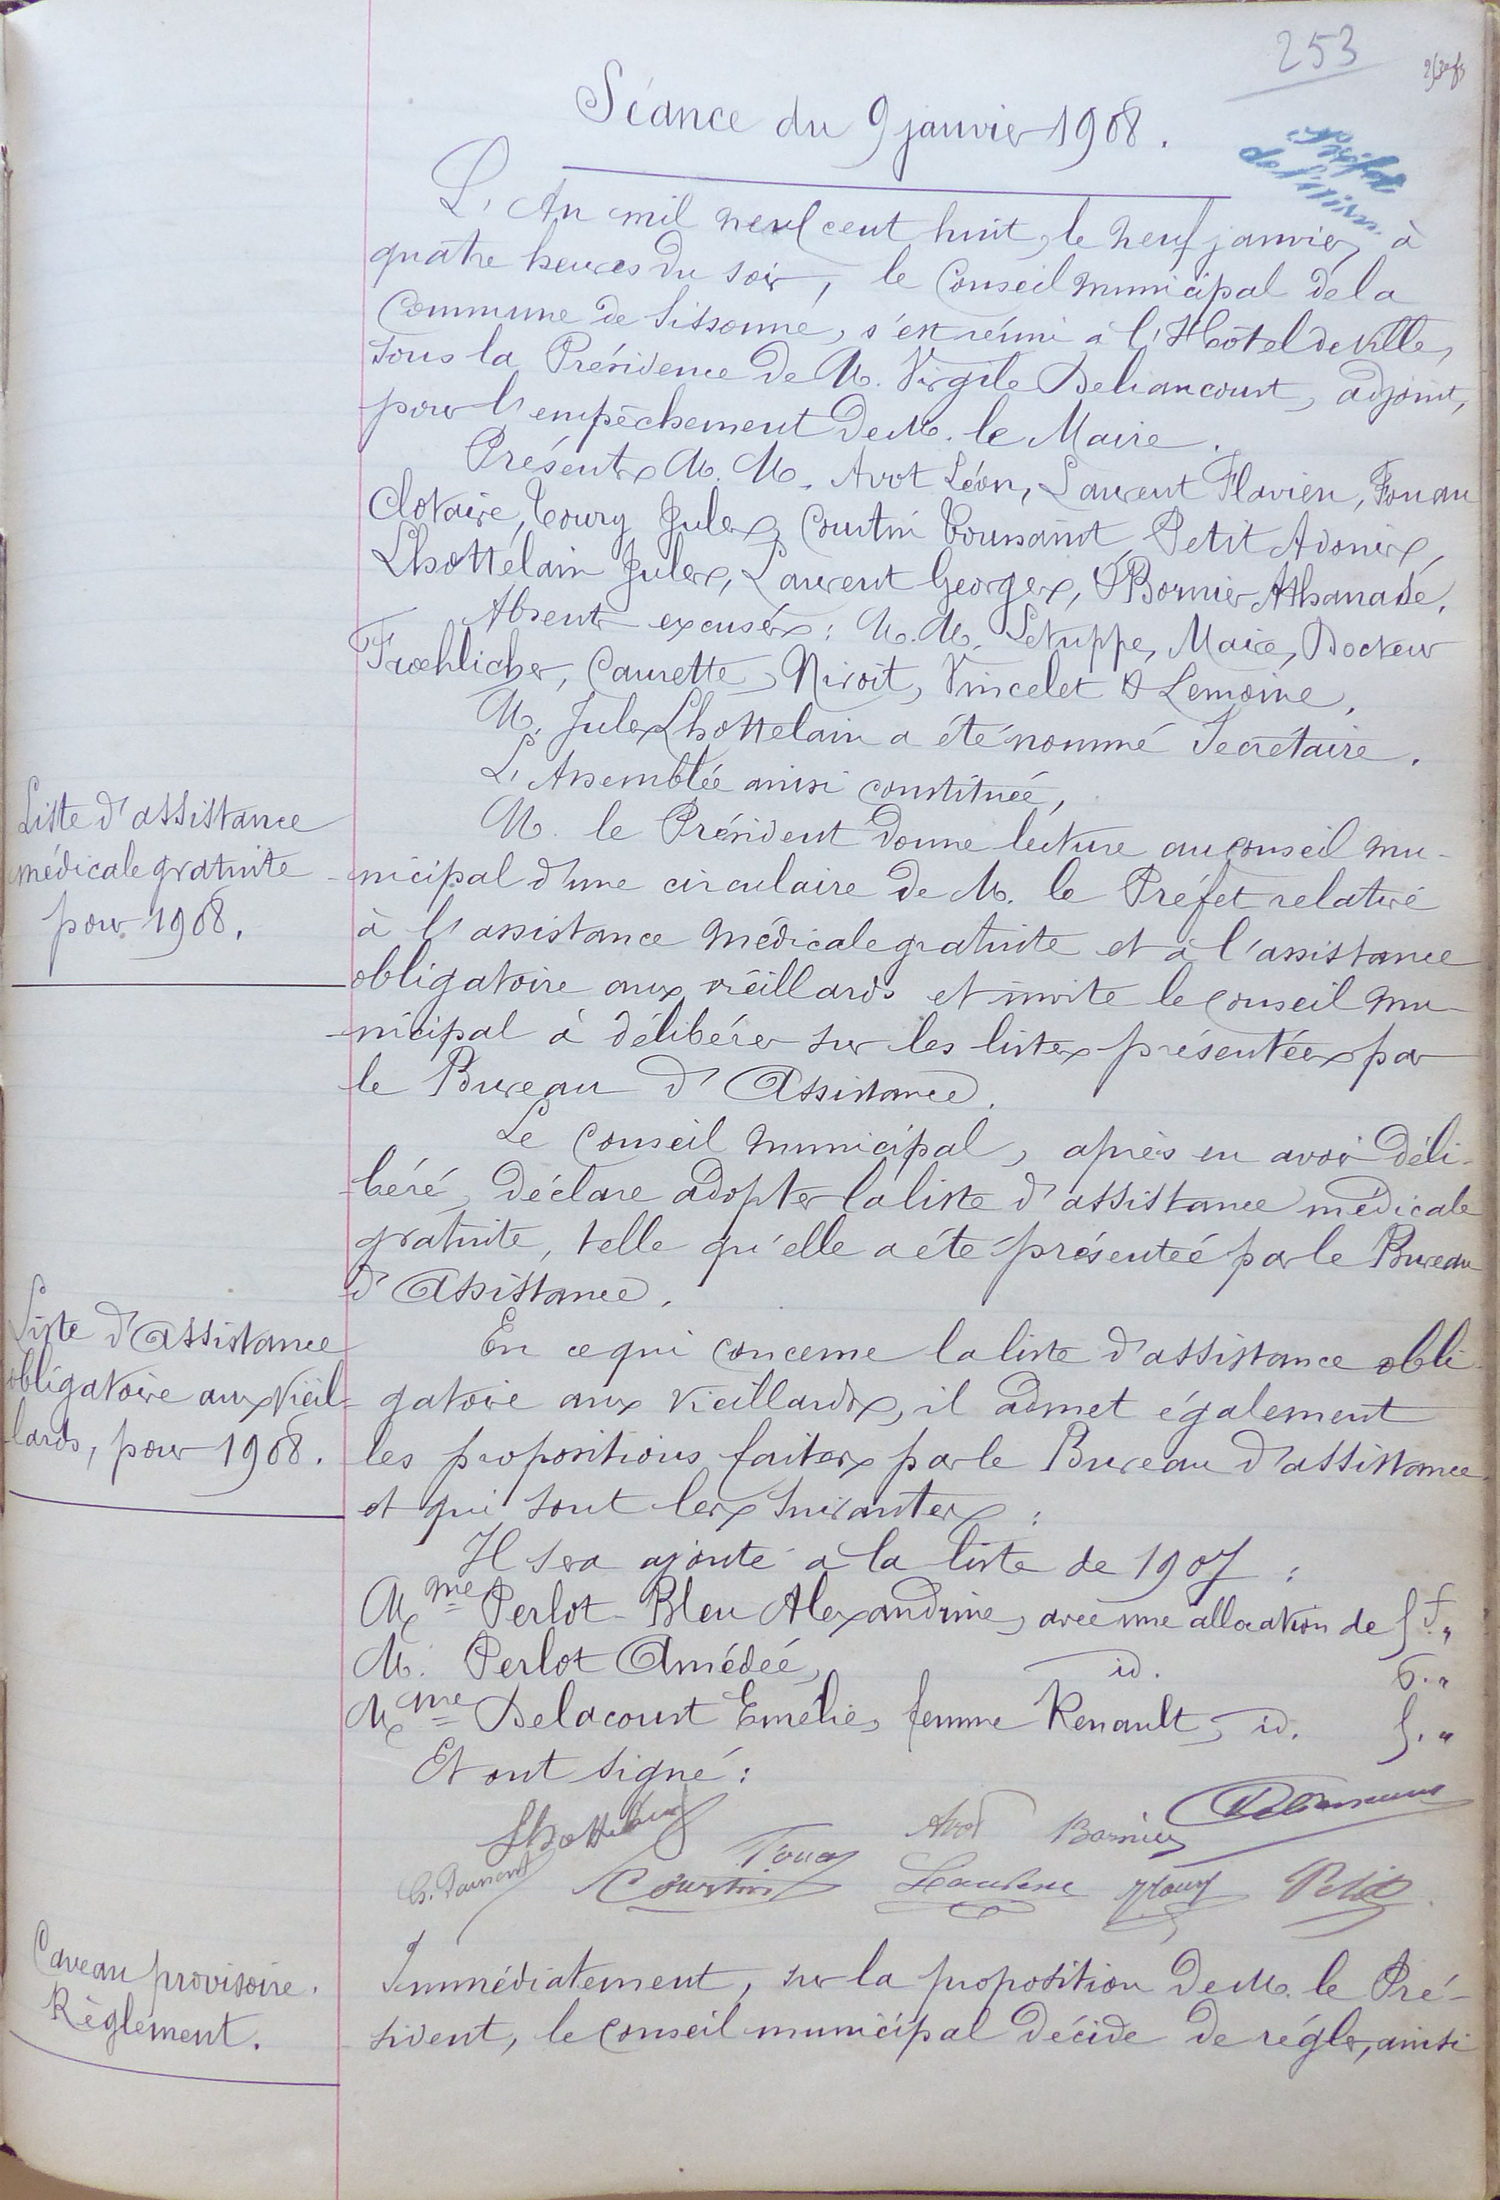 253
Séance du 9 janvier 1908.
Préfet
de l'Aisne
L'An mil neuf cent huit, le neuf janvier, à
quatre heures du soir, le Conseil municipal de la
Commune de Sissonne, s'est réuni à l'Hôtel de ville,
sous la Présidence de M. Virgile Deliancourt, adjoint,
pour l'empêchement de M. le Maire.
Présents M. M. Avot Léon, Laurent Flavien, Fouan
Clotaire, Toury Jules, Courtin Toussaint, Petit Adonis,
Lhottelain Jules, Laurent Georges, & Bornier Athanase.
Absents excusés : M. M. Letuppe, Maire, Docteur
Froehlicher, Caurette, Niroit, Vincelet & Lemoine.
M. Jules Lhottelain a été nommé Secrétaire.
L'Assemblée ainsi constituée,
Liste d'assistance
médicale gratuite
pour 1908.
M. le Président donne lecture au conseil mu-
nicipal d'une circulaire de M. le Préfet relative
à l'assistance médicale gratuite et à l'assistance
obligatoire aux vieillards et invite le conseil mu-
nicipal à délibérer sur les listes présentées par
le Bureau d'Assistance.
Le Conseil municipal, après en avoir déli-
béré, déclare adopter la liste d'assistance médicale
gratuite, telle qu'elle a été présentée par le Bureau
d'Assistance.
Liste d'Assistance
obligatoire aux vieil-
lards, pour 1908.
En ce qui concerne la liste d'assistance obli-
gatoire aux vieillards, il admet également
les propositions faites par le Bureau d'assistance
et qui sont les suivantes :
Il sera ajouté à la liste de 1907 :
Mme Perlot-Bleu Alexandrine, avec une allocation de 5 f. "
M. Perlot Amédée, id. 6. "
Mme Delacourt Emélie, femme Renault, id. 5. "
Et ont signé :
Lhottelain
Avot
Bornier
Deliancourt
G. Laurent
Courtin
Fouan
Laurent
Toury
Petit
Caveau provisoire.
Règlement.
Immédiatement, sur la proposition de M. le Pré-
sident, le conseil municipal décide de régler, ainsi